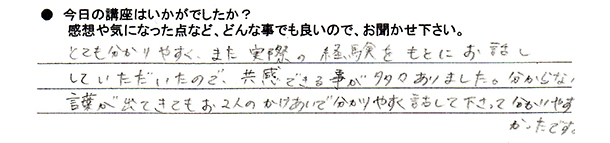 ● 今日の講座はいかがでしたか？
感想や気になった点など、どんな事でも良いので、お聞かせ下さい。
とても分かりやすく、また実際の経験をもとにお話し
していただいたので、共感できる事が多々ありました。分からない
言葉が出てきてもお2人のかけあいで分かりやすく話して下さって分かりやす
かったです。